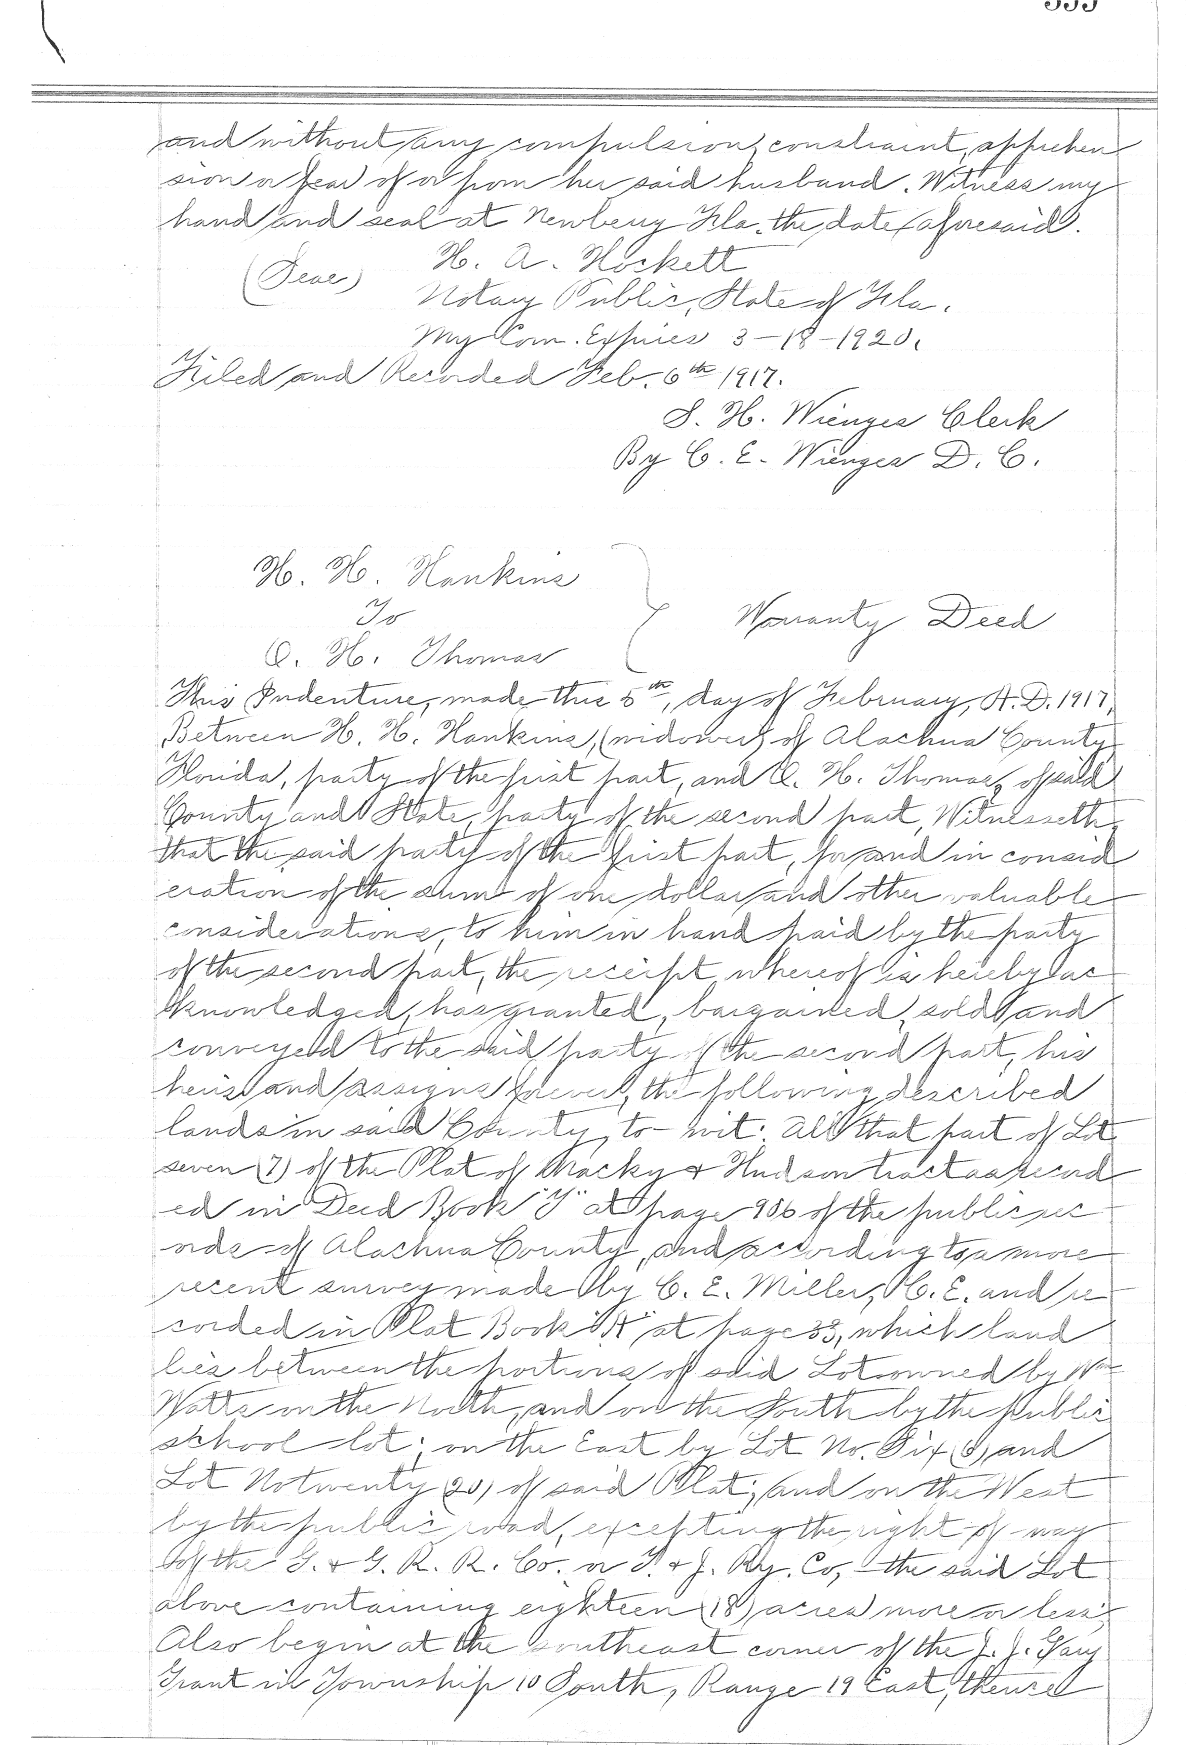 and without any compulsion, constraint, apprehen
sion or fear of or from her said husband. Witness my
hand and seal at Newberry Fla. the date aforesaid.
H. A. Hockett
(Seal)
Notary Public, State of Fla.
My Com. Expires 3-18-1920.
Filed and Recorded Feb. 6th 1917.
S. H. Wienges Clerk
By C. E. Wienges D. C.
H. H. Hankins
To
O. H. Thomas
Warranty Deed
This Indenture, made this 5th, day of February, A.D. 1917,
Between H. H. Hankins, (widower) of Alachua County
Florida, party of the first part, and O. H. Thomas, of said
County and State, party of the second part, Witnesseth,
that the said party of the first part, for and in consid
eration of the sum of one dollar and other valuable
considerations, to him in hand paid by the party
of the second part, the receipt whereof is hereby ac
knowledged, has granted, bargained, sold and
conveyed to the said party of the second part, his
heirs and assigns forever, the following described
lands in said County, to-wit: All that part of Lot
seven (7) of the Plat of Macky & Hudson tract as record
ed in Deed Book "Y" at page 986 of the public rec
ords of Alachua County, and according to a more
recent survey made by C. E. Miller, C. E. and re
corded in Plat Book "A" at page 33, which land
lies between the portions of said Lot owned by Wm
Watts on the North, and on the South by the public
school lot; on the East by Lot No. Six (6) and
Lot No twenty (20) of said Plat; and on the West
by the public road, excepting the right of way
of the G. & G. R. R. Co. or T. & J. Ry. Co, - the said Lot
above containing eighteen (18) acres more or less;
Also begin at the southeast corner of the J. J. Gary
Grant in Township 10 South, Range 19 East, thence